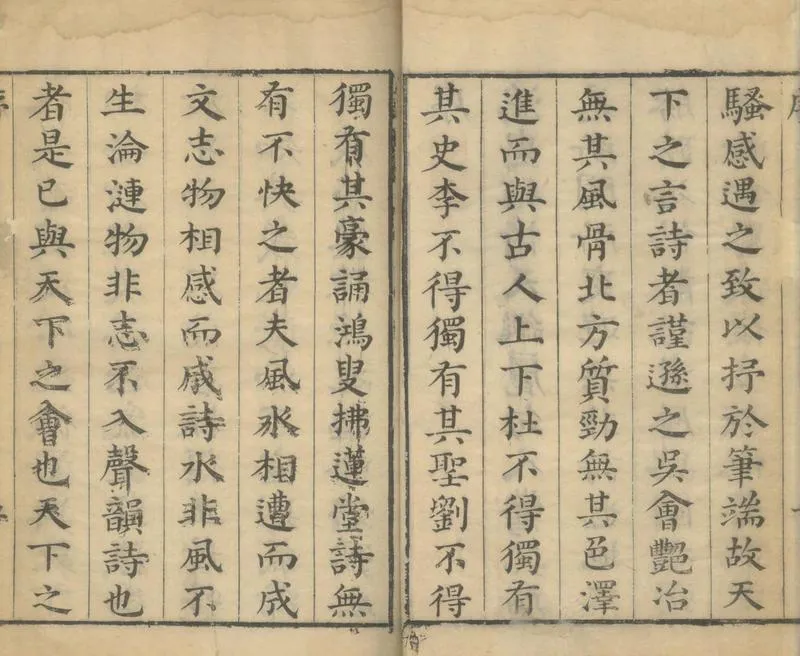 騷感遇之致以抒於筆端故天
下之言詩者謹遜之吳會艷冶
無其風骨北方質勁無其色澤
進而與古人上下杜不得獨有
其史李不得獨有其聖劉不得
獨有其豪誦鴻叟拂蓮堂詩無
有不快之者夫風水相遭而成
文志物相感而成詩水非風不
生淪漣物非志不入聲韻詩也
者是已與天下之會也天下之